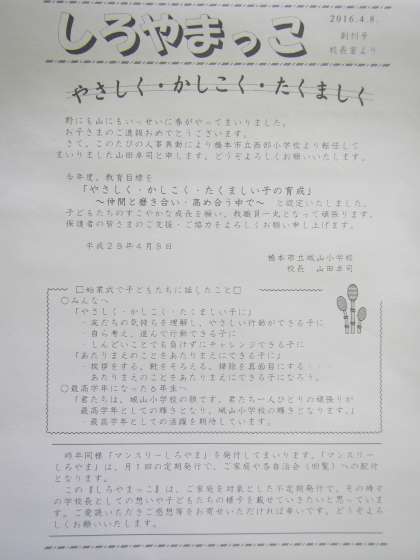 しろやまっこ
2016.4.8.
創刊号
校長室より
やさしく・かしこく・たくましく
野にも山にもいっせいに春がやってまいりました。
お子さまのご進級おめでとうございます。
さて、このたびの人事異動により橋本市立西部小学校より転任して
まいりました山田卓司と申します。どうぞよろしくお願いいたします。
今年度、教育目標を
「やさしく・かしこく・たくましい子の育成」
～仲間と磨き合い・高め合う中で～ と設定いたしました。
子どもたちのすこやかな成長を願い、教職員一丸となって頑張ります。
保護者の皆さまのご支援・ご協力をよろしくお願い申し上げます。
平成28年4月8日
橋本市立城山小学校
校長 山田卓司
□始業式で子どもたちに話したこと□
○みんなへ
「やさしく・かしこく・たくましい子に」
・友だちの気持ちを理解し、やさしい行動ができる子に
・自ら考え、進んで行動できる子に
・しんどいことでも負けずにチャレンジできる子に
「あたりまえのことをあたりまえにできる子に」
・挨拶をする、靴をそろえる、掃除を真面目にする・・・
あたりまえのことをあたりまえにできる子になろう。
○最高学年になった6年生へ
「君たちは、城山小学校の顔です。君たち一人ひとりの頑張りが
最高学年としての輝きとなり、城山小学校の輝きとなります。」
・最高学年としての活躍を期待しています。
昨年同様「マンスリーしろやま」を発行してまいります。「マンスリー
しろやま」は、月1回の定期発行で、ご家庭や各自治会（回覧）への配付
となります。
この『しろやまっこ』は、ご家庭を対象とした不定期発行で、その時々
の学校長としての想いや子どもたちの様子を載せていきたいと思っていま
す。ご愛読いただきご感想等をお寄せいただければ幸いです。どうぞよろ
しくお願いいたします。